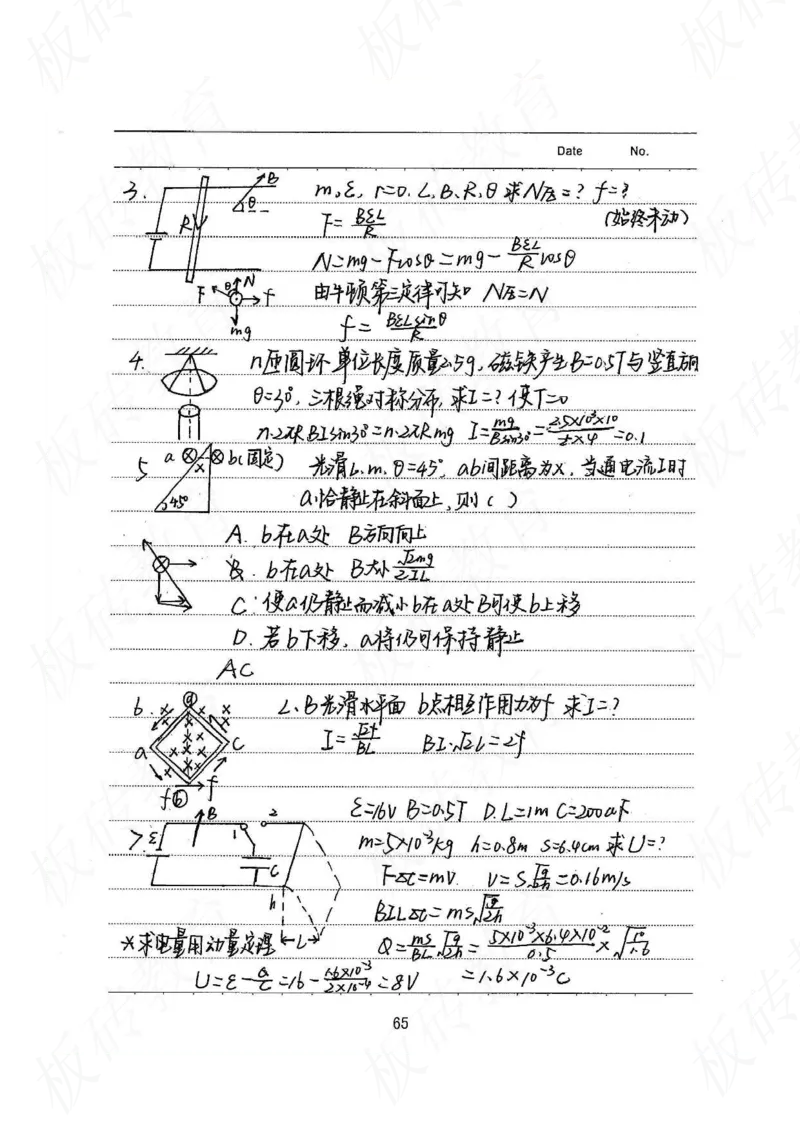 Date No.
3. m, ε, r=0. L, B, R, θ 求N压=? f=?
(始终未动)
F= BεL/R
N=mg-Fcosθ=mg- BεL/R cosθ
由牛顿第三定律可知 N压=N
f= BεLsinθ/R
B
θ
R
F θ N f
mg
4. n匝圆环 单位长度质量2.5g, 磁铁产生B=0.5T与竖直方向
θ=30°, 三根绳对称分布, 求I=? 使T=0
n·2πR BI sin30°=n·2πR mg I= mg/Bsin30° = 2.5×10³×10/½×4 =0.1
5 a ⊗ ⊗ b(固定) x 45°
光滑L. m. θ=45°, ab间距离为x, 当通电流I时
a恰静止在斜面上, 则( )
A. b在a处 B方向向上
B. b在a处 B大小 √2mg/2IL
C. 使a仍静止而减小b在a处B可使b上移
D. 若b下移, a将仍可保持静止
AC
6. L、B光滑水平面 b点相互作用力为f 求I=?
I= √2f/BL BI·√2L=2f
d
a c
f b f
7. ε B 1 2 C h L
ε=16V B=0.5T D. L=1m C=200uF
m=5×10⁻³kg h=0.8m s=6.4cm 求U=?
F△t=mv. v=S√g/2h=0.16m/s
BIL△t=ms√g/2h
*求电量用动量定理 Q= ms/BL √g/2h = 5×10⁻³×6.4×10⁻²/0.5 × √10/1.6
U=ε- Q/C =16- 1.6×10⁻³/2×10⁻⁴ =8V =1.6×10⁻³C
65
板砖教育